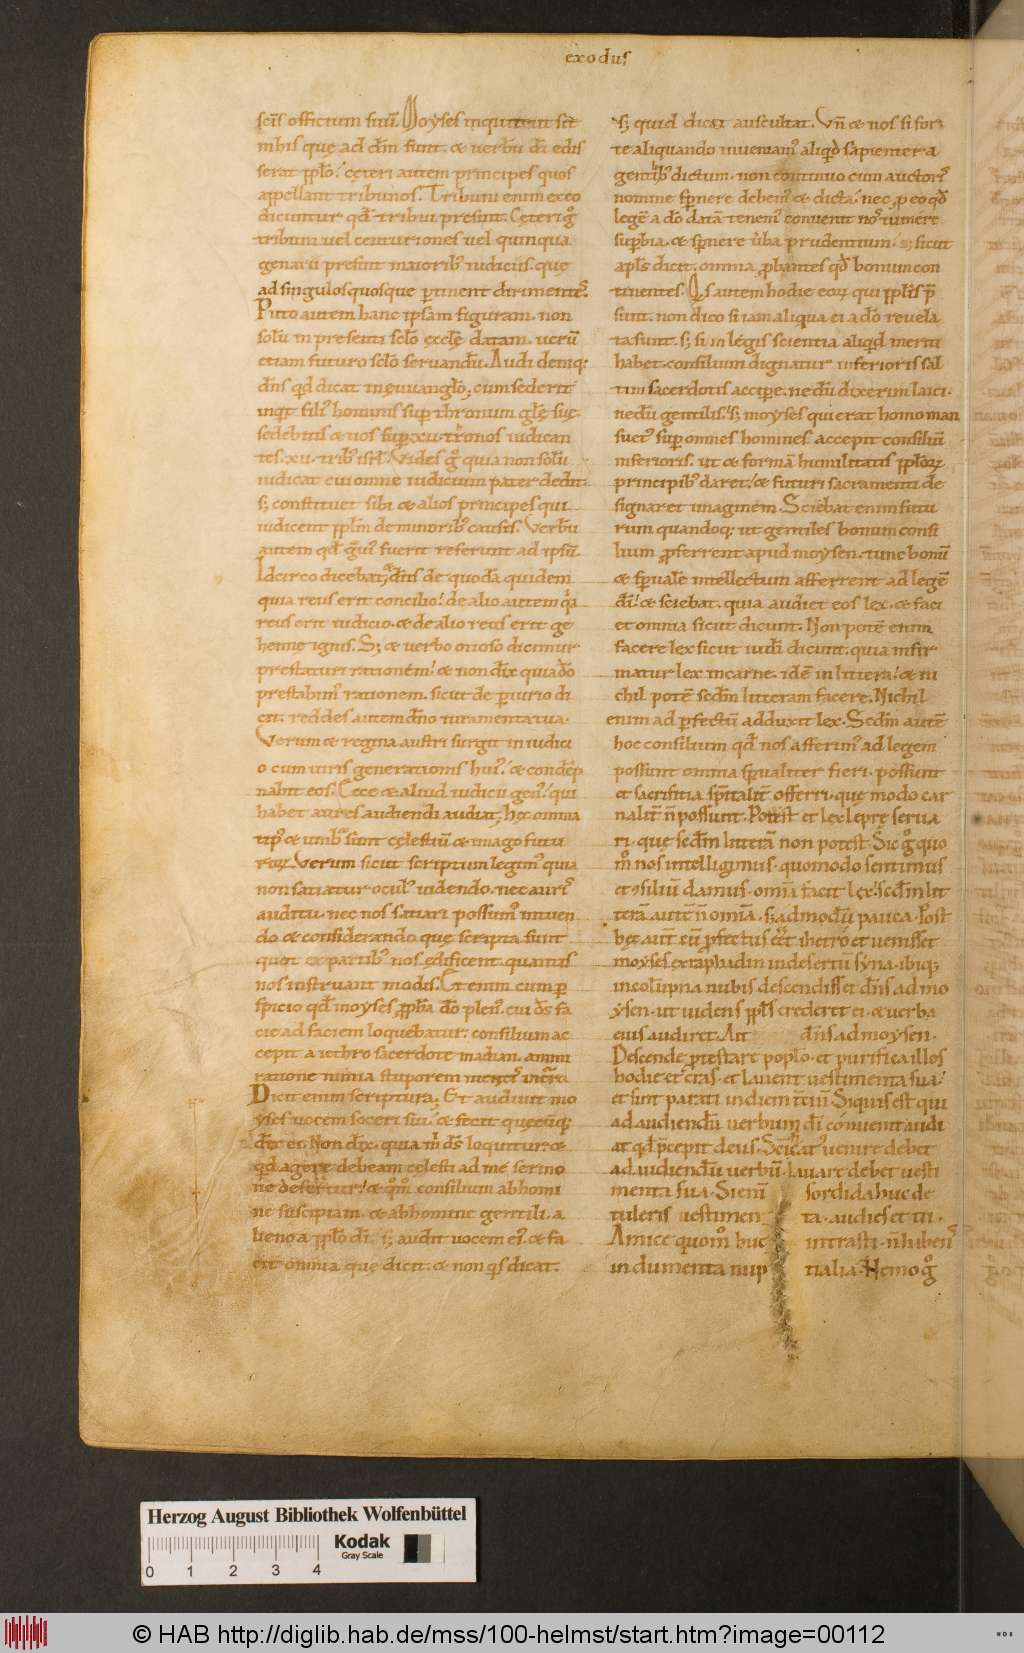 exodus
scĩs officium suũ. Moyses inquit erit scit
in his que ad dm̃ sunt. & verbũ di edis
serat ppl̃o. Ceteri autem principes quos
appellant tribunos. Tribuni enim ex eo
dicuntur qđ tribui presint. Ceteri g̊
tribuni uel centuriones uel quinqua
genarii presunt maiorib; iudiciis. que
ad singulos quosque ptinent dirimentes.
Puto autem hanc ipsam figuram. non
solũ in presenti sclo eccle datam. uerũ
etiam futuro sclo seruandũ. Audi deniq;
dñs qđ dicat in euuanglo. cum sederit
inqt fili hominis sup thronum gle sue.
sedebitis & uos sup xii. tronos iudican
tes. xii. trib; isrl. Vides g̊ quia non solũ
iudicat cui omne iudicium pater dedit.
s; constituet sibi & alios principes qui
iudicent pplm de minorib; causis. Verbũ
autem qđ g̃ui fuerit referunt ad ipsũ.
Idcirco dicebat & dñs de quodã quidem
quia reus erit concilio. de alio autem qa
reus erit iudicio. & de alio reus erit ge
henne ignis. S; & uerbo otioso dicimur
prestaturi rationem. & non dix quia do
prestabim rationem. sicut de piurio di
cit. reddes autem dño iuramenta tua.
Verum & regina austri surget in iudici
o cum uiris generationis hui. & condep
nabit eos. Ecce & aliud iudicii gen. qui
habet aures audiendi audiat. hec omnia
tip & umbra sunt celestiũ & imago futu
roꝝ. Verum sicut scriptum legim quia
non satiatur oculus uidendo. nec auris
auditu. nec nos satiari possum intuen
do & considerando que scripta sunt
quot ex partib; nos edificent. quantis
nos instruant modis. Et enim cum per
spicio qđ moyses ppha do plen. cui ds fa
cie ad faciem loquebatur. consilium ac
cepit a iethro sacerdote madian. animi
ratione nimia stuporem mentis
Dicit enim scriptura. Et audiuit mo
yses vocem soceri sui. & fecit quecũq;
dix ei. Non dix. quia m ds loquitur. &
qđ agere debeam celesti ad me sermo
ne desertur. & quom consilium ab homi
ne suscipiam. & ab homine gentili. a
lieno a pplo di. s; audit uocem ei. & fa
cit omnia que dicit. & non qs dicat.
s; quid dicat auscultat. Vn & nos si for
te aliquando inueniam aliqđ sapienter a
gentib; dictum. non continuo cum auctoris
nomine spnere debem & dicta. nec p eo qđ
legẽ a do datã tenem conuenit nos tumere
supbia. & spnere uba prudentium. s; sicut
apls dicit. omnia pbantes qđ bonum con
tinentes. Qs autem hodie eoꝝ qui pplis p
sunt. non dico si iam aliqua ei a do reuela
ta sunt. s; si in legis scientia aliqd meriti
habet. consilium dignatur inferioris sal
tim sacerdotis accipe. nedũ dixerim laici.
nedũ gentilis. S; moyses qui erat homo man
suet sup omnes homines accepit consiliũ
inferioris. ut & formã humilitatis pploꝝ
principib; daret. & futuri sacramenti de
signaret imaginem. Sciebat enim futu
rum quandoq; ut gentiles bonum consi
lium proferrent apud moysen. tunc bonũ
& spuale intellectum afferrent ad legẽ
di. & sciebat. quia audiet eos lex. & faci
et omnia sicut dicunt. Non potẽ enim
facere lex sicut iudi dicunt. quia infir
matur lex in carne. idẽ in littera. & ni
chil potẽ sedm litteram facere. Nichil
enim ad pfectũ adduxit lex. Sedm autẽ
hoc consilium qđ nos afferim ad legem
possunt omnia spualiter fieri. possunt
et sacrificia spitalit offerri. que modo car
nalit n possunt. Potest et lex lepre serua
ri. que sedm literã non potest. Sic g̊ quo
m nos intelligimus. quomodo sentimus
et csiliũ damus. omia facit lex. sedm lit
terã autẽ n omia. s; admodũ pauca. Post
hec aut cũ pfectus eet ihetro et uenisset
moyses ex raphidin in desertũ syna. ibiq;
in colũpna nubis descendisset dñs ad mo
ysen. ut uidens ppls crederet ei. & uerba
eius audiret. Ait dñs ad moysen.
Descende ptestare poplo. et purifica illos
hodie et cras. et lauent uestimenta sua.
et sint parati in diem tciũ. Siquis est qui
ad audiendũ verbum di conuenit audi
at qđ pcepit deus. Scificat uenire debet
ad audiendũ uerbũ. lauare debet uesti
menta sua. Si eni sordida huc de
tuleris uestimen ta. audies et tu.
Amice quom huc intrasti. n habens
indumenta nup tialia. Nemo g̊
Herzog August Bibliothek Wolfenbüttel
Kodak
Gray Scale
0 1 2 3 4
© HAB http://diglib.hab.de/mss/100-helmst/start.htm?image=00112